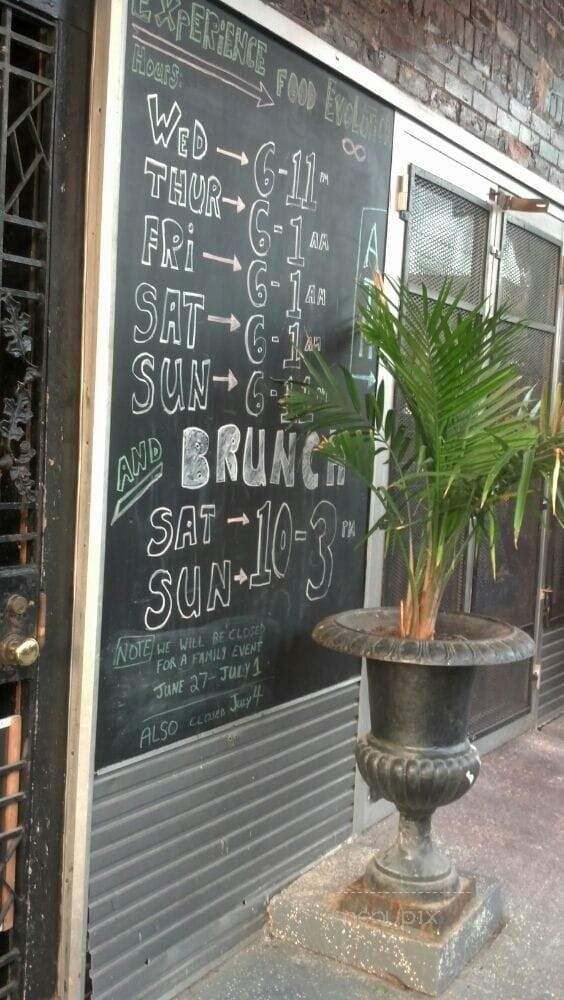 EXPERIENCE FOOD EVOLUTION
Hours:
WED → 6-11 PM
THUR → 6-1 AM
FRi → 6-1 AM
SAT → 6-1 AM
SUN → 6-11
AND BRUNCH
SAT → 10-3 PM
SUN →
NOTE WE WILL BE CLOSED
FOR A FAMILY EVENT
JUNE 27-JULY 1
ALSO CLOSED JULY 4